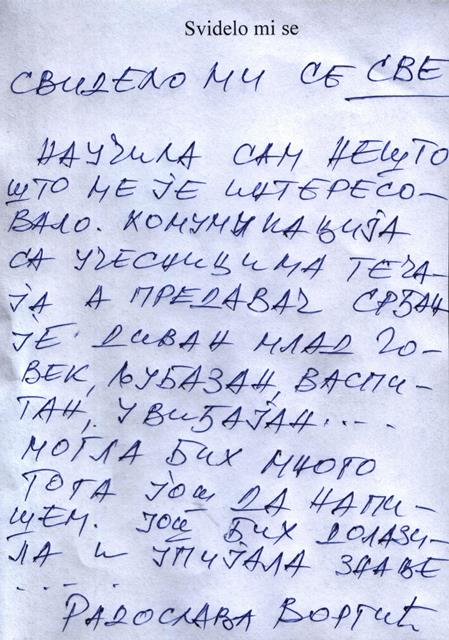 Svidelo mi se
СВИДЕЛО МИ СЕ СВЕ
НАУЧИЛА САМ НЕШТО
ШТО МЕ ЈЕ ИНТЕРЕСО-
ВАЛО. КОМУНИКАЦИЈА
СА УЧЕСНИЦИМА ТЕЧА-
ЈА А ПРЕДАВАЧ СРЂАН
ЈЕ ДИВАН МЛАД ЧО-
ВЕК, ЉУБАЗАН, ВАСПИ-
ТАН, УВИЂАЈАН....
МОГЛА БИХ МНОГО
ТОГА ЈОШ ДА НАПИ-
ШЕМ. ЈОШ БИХ ДОЛАЗИ-
ЛА И УПИЈАЛА ЗНАЊЕ
.....
РАДОСЛАВА